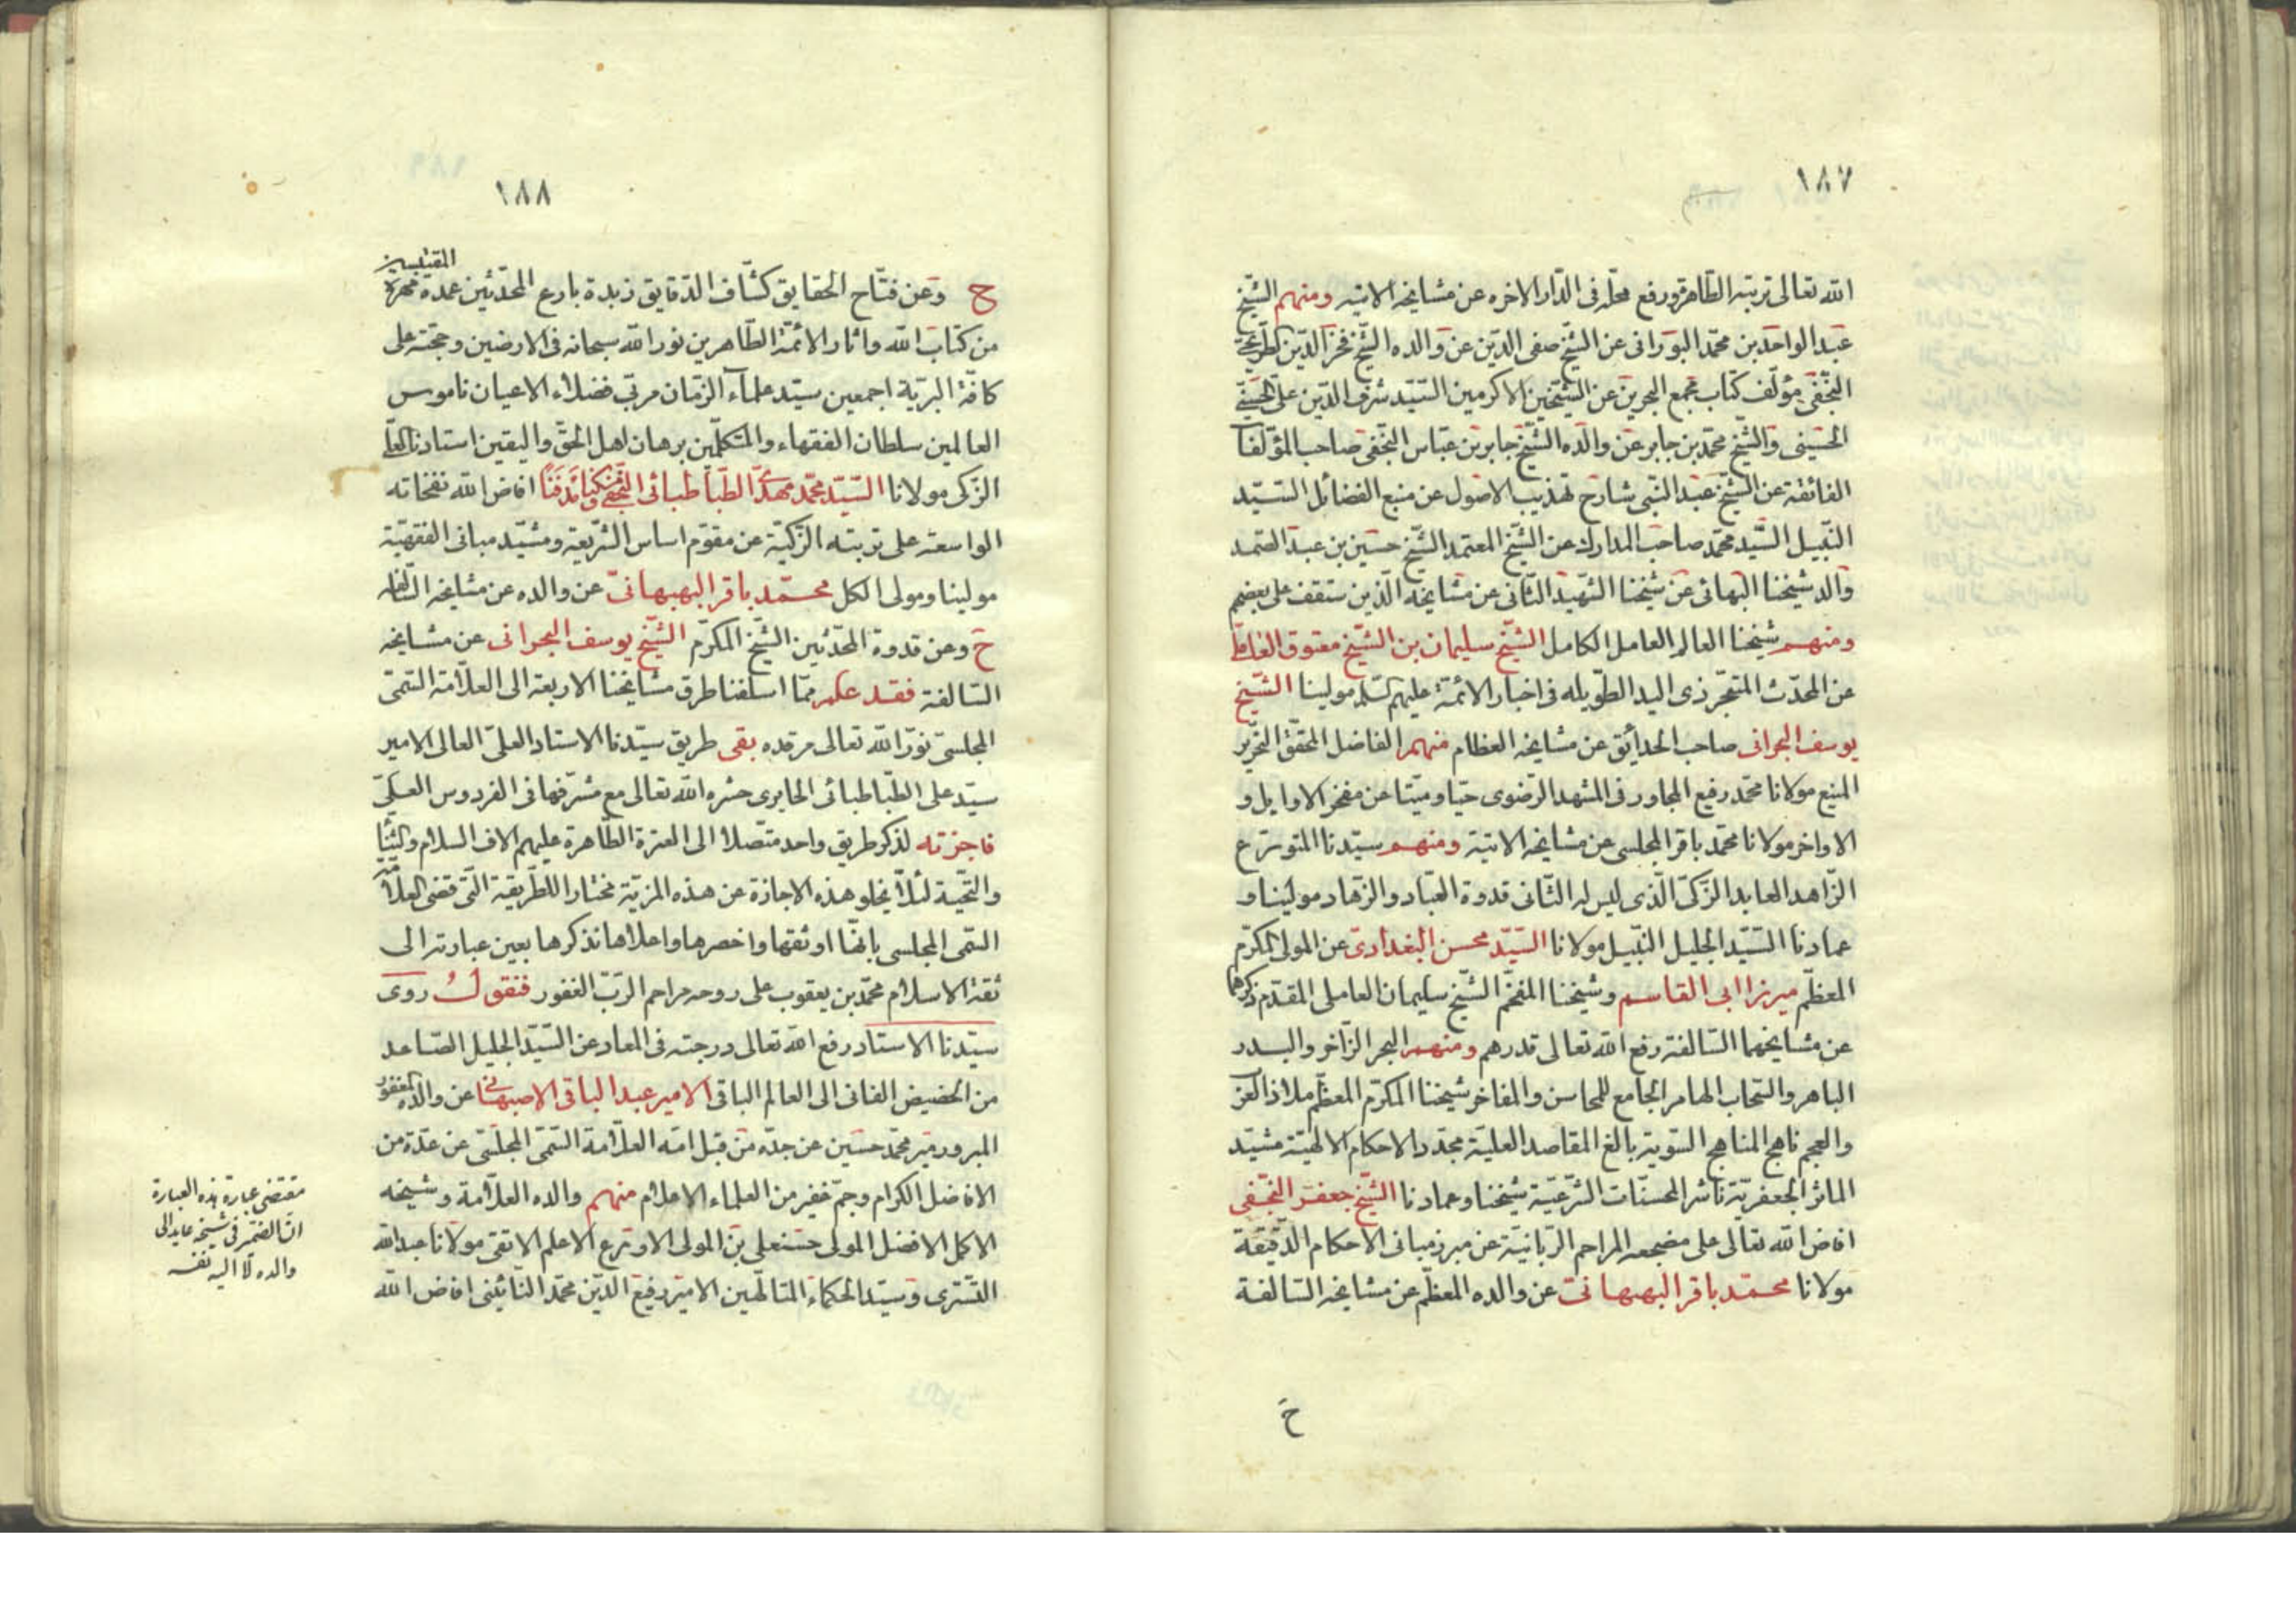 ١٨٧
الله تعالى تربته الطاهرة ورفع محله فى الدار الاخره عن مشايخه الاتيه ومنهم الشيخ
عبد الواحد بن محمد البورانى عن الشيخ صفى الدين عن والده الشيخ فخر الدين الطريحى
النجفى مؤلف كتاب مجمع البحرين عن الشيخين الاكرمين السيد شرف الدين على
الحسينى والشيخ محمد بن جابر عن والده الشيخ جابر بن عباس النجفى صاحب المؤلفات
الفائقة عن الشيخ عبد النبى شارح تهذيب الاصول عن منبع الفضائل السيد
النبيل السيد محمد صاحب المدارك عن الشيخ المعتمد الشيخ حسين بن عبد الصمد
والد شيخنا البهائى عن شيخنا الشهيد الثانى عن مشايخه الذين ستقف على بعضهم
ومنهم شيخنا العالم العامل الكامل الشيخ سليمان بن الشيخ معتوق العاملى
عن المحدث المتبحر ذى اليد الطويله فى اخبار الائمة عليهم السلم مولينا الشيخ
يوسف البحرانى صاحب الحدائق عن مشايخه العظام منهم الفاضل المحقق النحرير
المنيع مولانا محمد رفيع المجاور فى المشهد الرضوى حيا وميتا عن مفخر الاوايل و
الاواخر مولانا محمد باقر المجلسى عن مشايخه الاتية ومنهم سيدنا المتورع
الزاهد العابد الزكى الذى ليس له الثانى قدوة العباد والزهاد مولينا و
عمادنا السيد الجليل النبيل مولانا السيد محسن البغدادى عن المولى المكرم
المعظم ميرزا ابى القاسم وشيخنا المفخم الشيخ سليمان العاملى المقدم ذكرهما
عن مشايخهما السالفة رفع الله تعالى قدرهم ومنهم البحر الزاخر والبدر
الباهر والسحاب الهامر الجامع للمحاسن والمفاخر شيخنا المكرم المعظم ملاذ العرب
والعجم ناهج المناهج السوية بالغ المقاصد العلية مجدد الاحكام الالهية مشيد
الماثر الجعفرية ناشر المحسنات الشرعية شيخنا وعمادنا الشيخ جعفر النجفى
افاض الله تعالى على مضجعه المراحم الربانية عن مبرز مبانى الاحكام الدقيقة
مولانا محمد باقر البهبهانى عن والده المعظم عن مشايخه السالفة
ح
١٨٨
المقتبسين
ح وعن فتاح الحقايق كشاف الدقايق زبدة بارع المحدثين عمدة مهرة
من كتاب الله واثار الائمة الطاهرين نور الله سبحانه فى الارضين وحجته على
كافة البرية اجمعين سيد علماء الزمان مربى فضلاء الاعيان ناموس
العالمين سلطان الفقهاء والمتكلمين برهان اهل الحق واليقين استادنا العلى
الزكى مولانا السيد محمد مهدى الطباطبائى النجفى مسكنا ومدفنا افاض الله نفخاته
الواسعة على تربته الزكية عن مقوم اساس الشريعة ومشيد مبانى الفقهية
مولينا ومولى الكل محمد باقر البهبهانى عن والده عن مشايخه السالفه
ح وعن قدوة المحدثين الشيخ المكرم الشيخ يوسف البحرانى عن مشايخه
السالفة فقد علم مما اسلفنا طرق مشايخنا الاربعة الى العلامة السمى
المجلسى نور الله تعالى مرقده بقى طريق سيدنا الاستاد العلى العالى الامير
سيد على الطباطبائى الحايرى حشره الله تعالى مع مشرفها فى الفردوس العلى
فاجزته لذكر طريق واحد متصلا الى العترة الطاهرة عليهم الاف السلام والثنا
والتحية لئلا يخلو هذه الاجازة عن هذه المزية مختارا للطريقة التى قضى العلامة
السمى المجلسى بانها اوثقها واخصرها واعلاها نذكرها بعين عبارته الى
ثقة الاسلام محمد بن يعقوب على روحه مراحم الرب الغفور فنقول روى
سيدنا الاستاد رفع الله تعالى درجته فى المعاد عن السيد الجليل الصاعد
من الحضيض الفانى الى العالم الباقى الامير عبد الباقى الاصبهانى عن والده المغفور
المبرور مير محمد حسين عن جده من قبل امه العلامة السمى المجلسى عن عدة من
الافاضل الكرام وجم غفير من العلماء الاعلام منهم والده العلامة وشيخه
الاكمل الافضل المولى حسنعلى بن المولى الاورع الاعلم الاتقى مولانا عبد الله
التسترى وسيد الحكماء المتالهين الامير رفيع الدين محمد النائينى افاض الله
مقتضى عبارة هذه العبارة
ان الضمير فى شيخه عايد الى
والده لا اليه نفسه